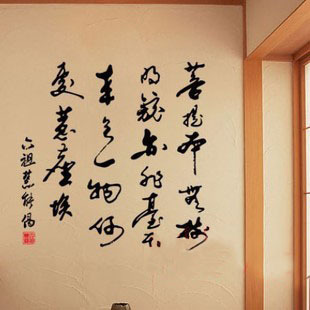 菩提本無樹
明鏡亦非臺本
來無一物何
處惹塵埃
六祖慧能偈